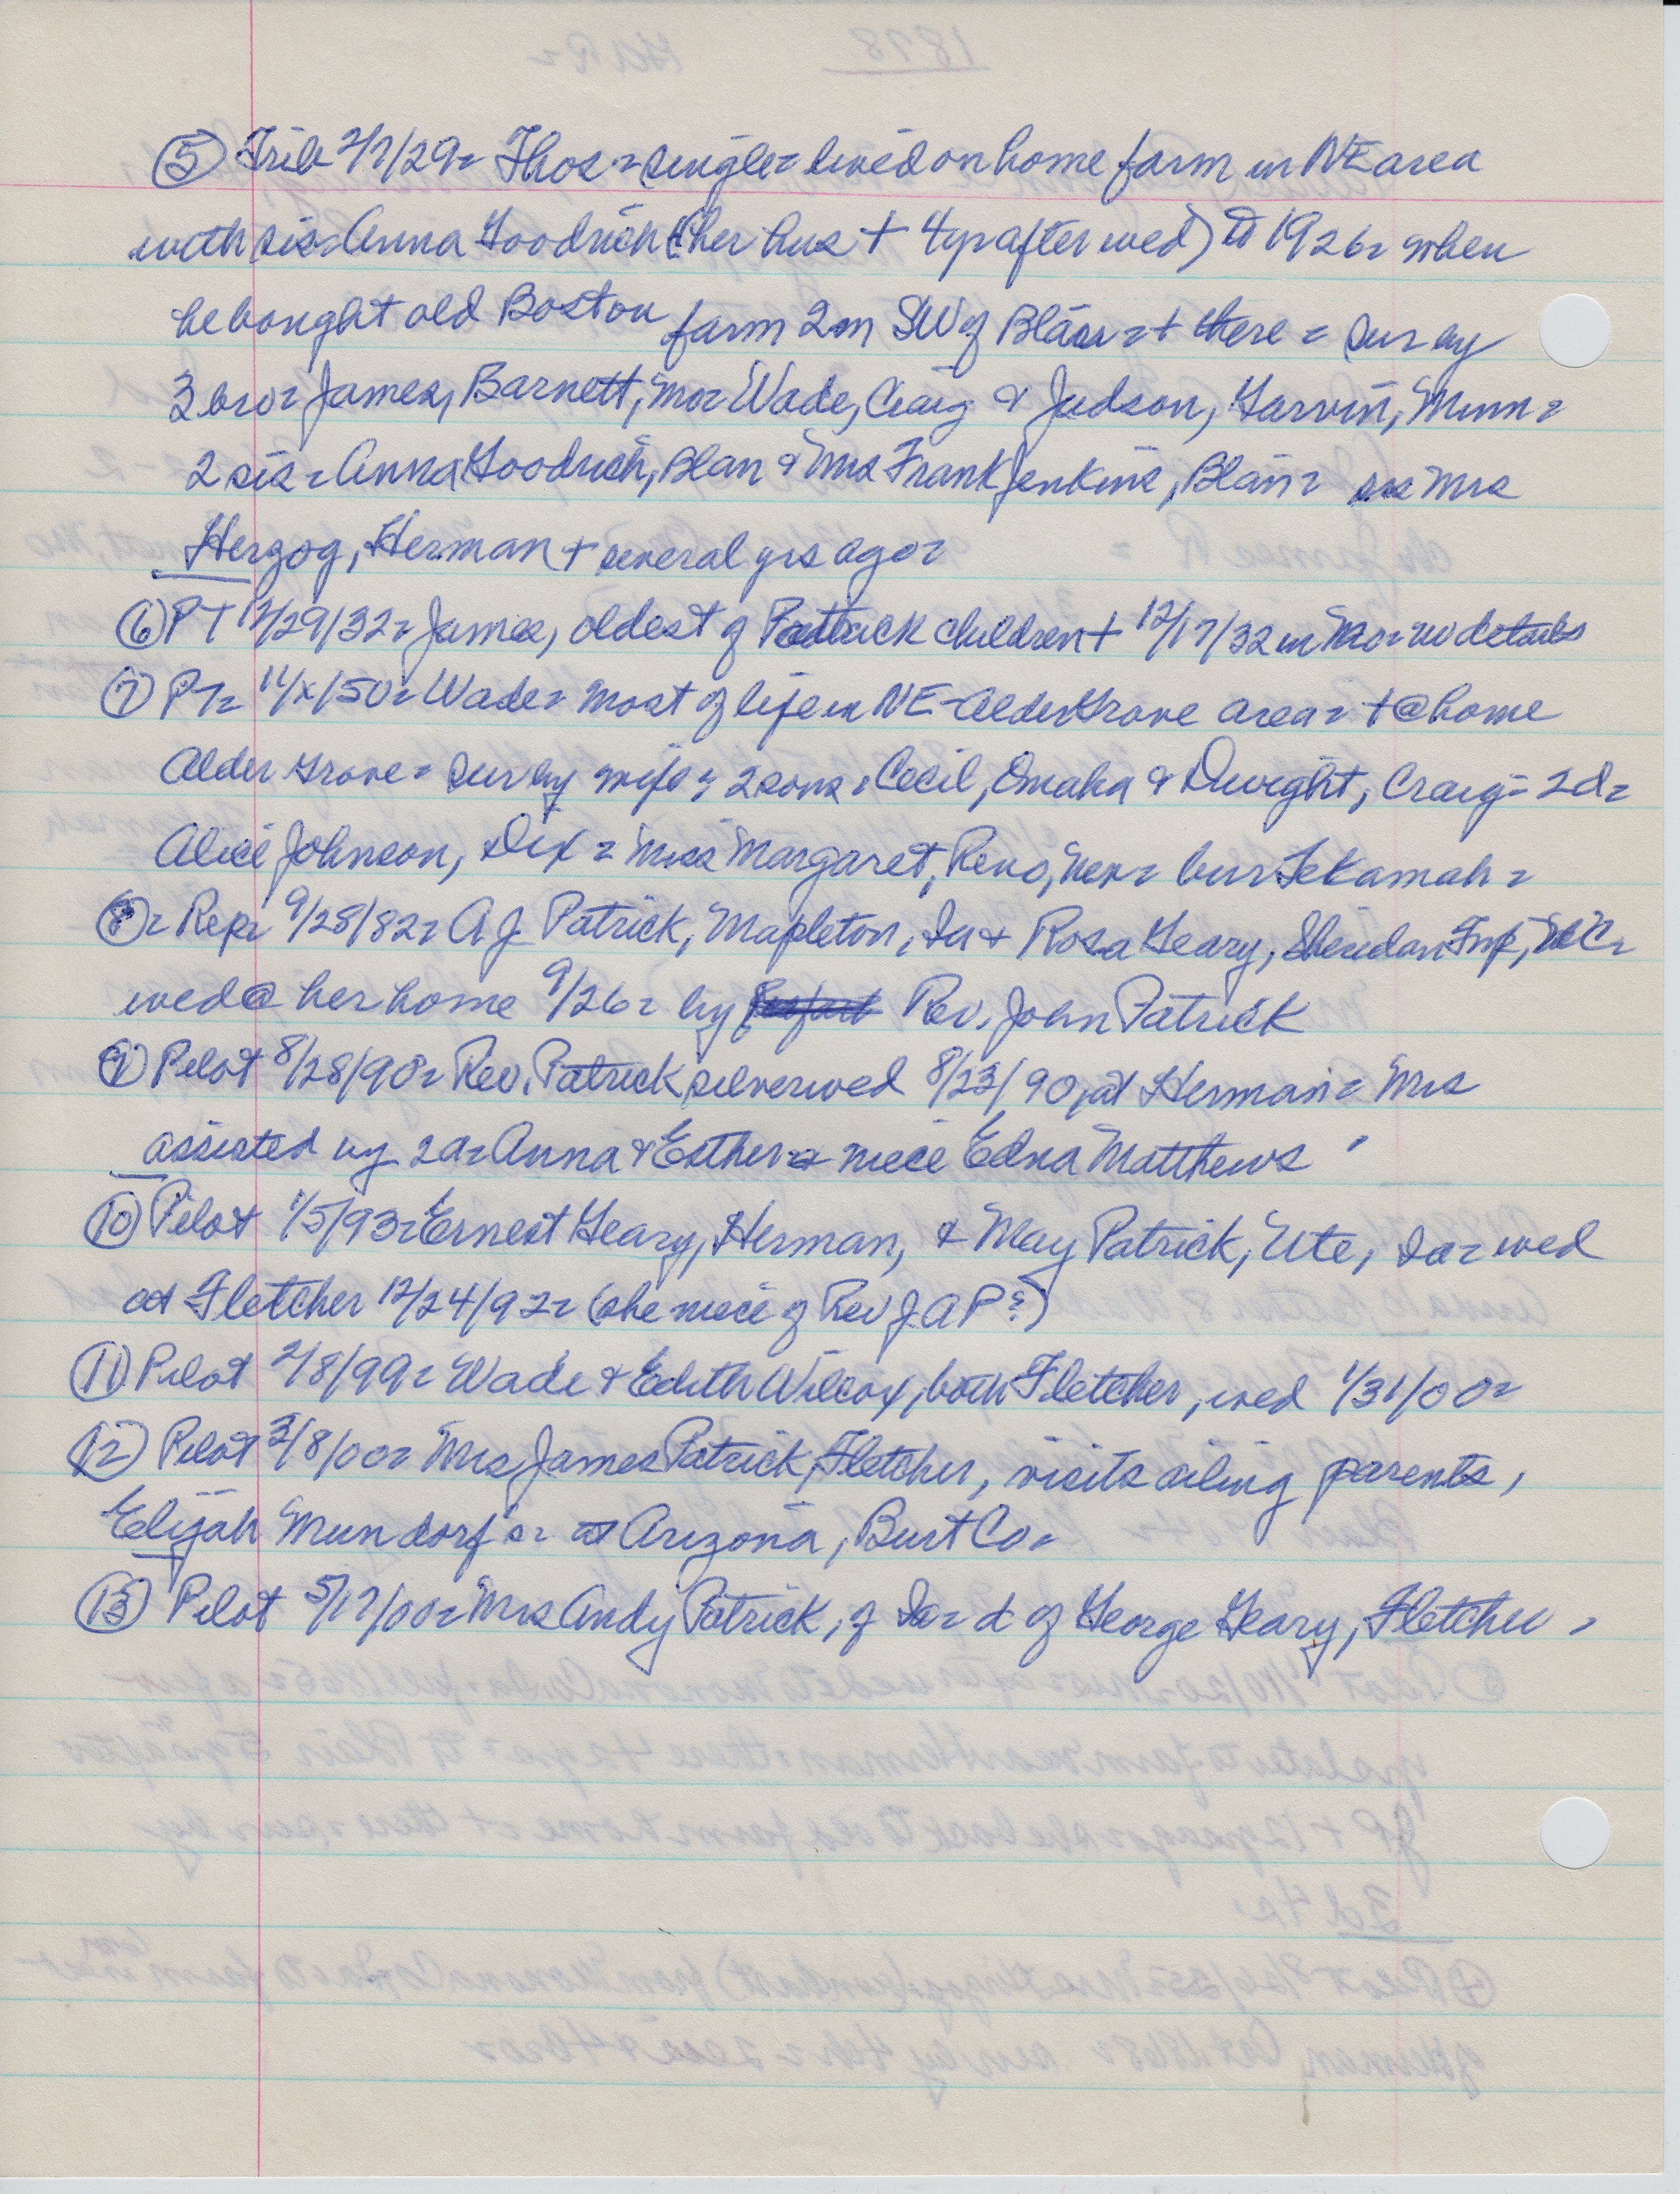 ⑤ Trib 2/7/29= Thos = single = lived on home farm in NE area
with sis= Anna Goodrich (her hus + 4 yr after wed) to 1926= when
he bought old Boston farm 2m SW of Blair = + there = sur by
3 bro= James, Barnett, Mo= Wade, Craig & Judson, Garvin, Minn=
2 sis= Anna Goodrich, Blair & Mrs Frank Jenkins, Blair= sis Mrs
Herzog, Herman + several yrs ago=
⑥ PT 12/29/32= James, oldest of Patrick children + 12/17/32 in Mo= no details
⑦ PT= 11/x/50= Wade= most of life in NE-Alder Grove area= + @ home
Alder Grove= sur by wife; 2 sons= Cecil, Omaha & Dwight, Craig= 2d=
Alice Johnson, Dix = Miss Margaret, Reno, Nev= bur Tekamah=
⑧= Rep= 9/28/82= A J Patrick, Mapleton, Ia + Rosa Geary, Sheridan Twp, WC=
wed @ her home 9/26= by Rev. John Patrick
⑨ Pilot 8/28/90= Rev. Patrick silver wed 8/23/90, at Herman= Mrs
assisted by 2d= Anna & Esther & niece Edna Matthews
⑩ Pilot 1/5/93= Ernest Geary, Herman, & May Patrick, Ute, Ia= wed
at Fletcher 12/24/92= (she niece of Rev J A P?)
⑪ Pilot 2/8/99= Wade & Edith Wilcox, both Fletcher, wed 1/31/00=
⑫ Pilot 3/8/00= Mrs James Patrick, Fletcher, visits ailing parents,
Elijah Mundorf's= at Arizona, Burt Co=
⑬ Pilot 5/17/00= Mrs Andy Patrick, of Ia= d of George Geary, Fletcher =